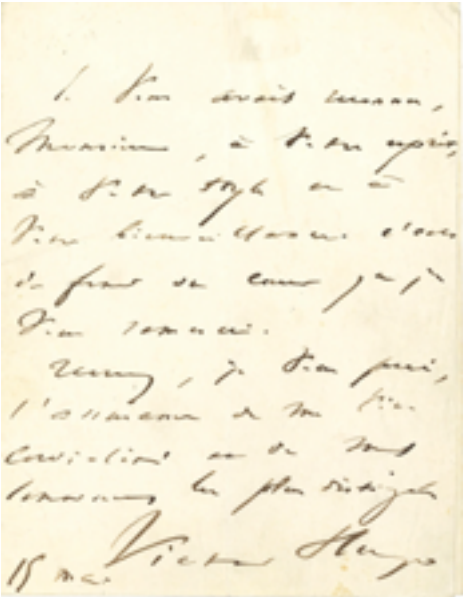 Je vous avais reconnu,
Monsieur, à votre esprit,
à votre style et à
votre bienveillance. C'est
du fond du coeur que je
vous remercie.
Recevez, je vous prie,
l'assurance de ma
cordialité et de mes
sentiments les plus distingués
Victor Hugo
15